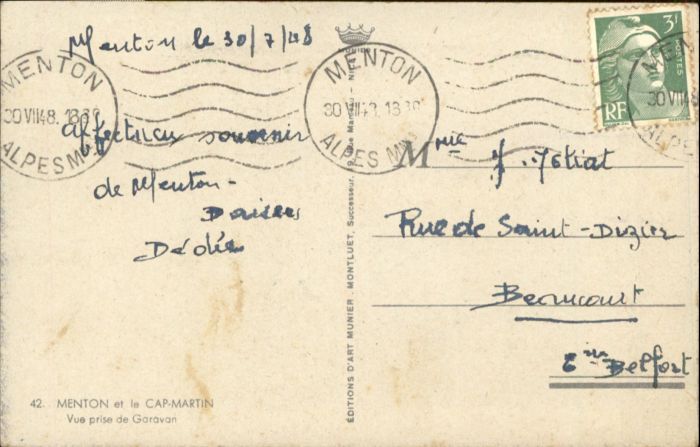 Menton le 30/7/48
MENTON
30 VII 48. 18 30
ALPES Mmes
MENTON
30 VII 48. 18 30
ALPES Mmes
MENTON
30 VII
ALPES
3F
POSTES
RF
Affectueux souvenir
de Menton-
Baisers
Dédée
Mme
Rue de Saint-Dizier
Beaucourt
Belfort
ÉDITIONS D'ART MUNIER. MONTLUET, Successeur.
42. MENTON et le CAP-MARTIN
Vue prise de Garavan